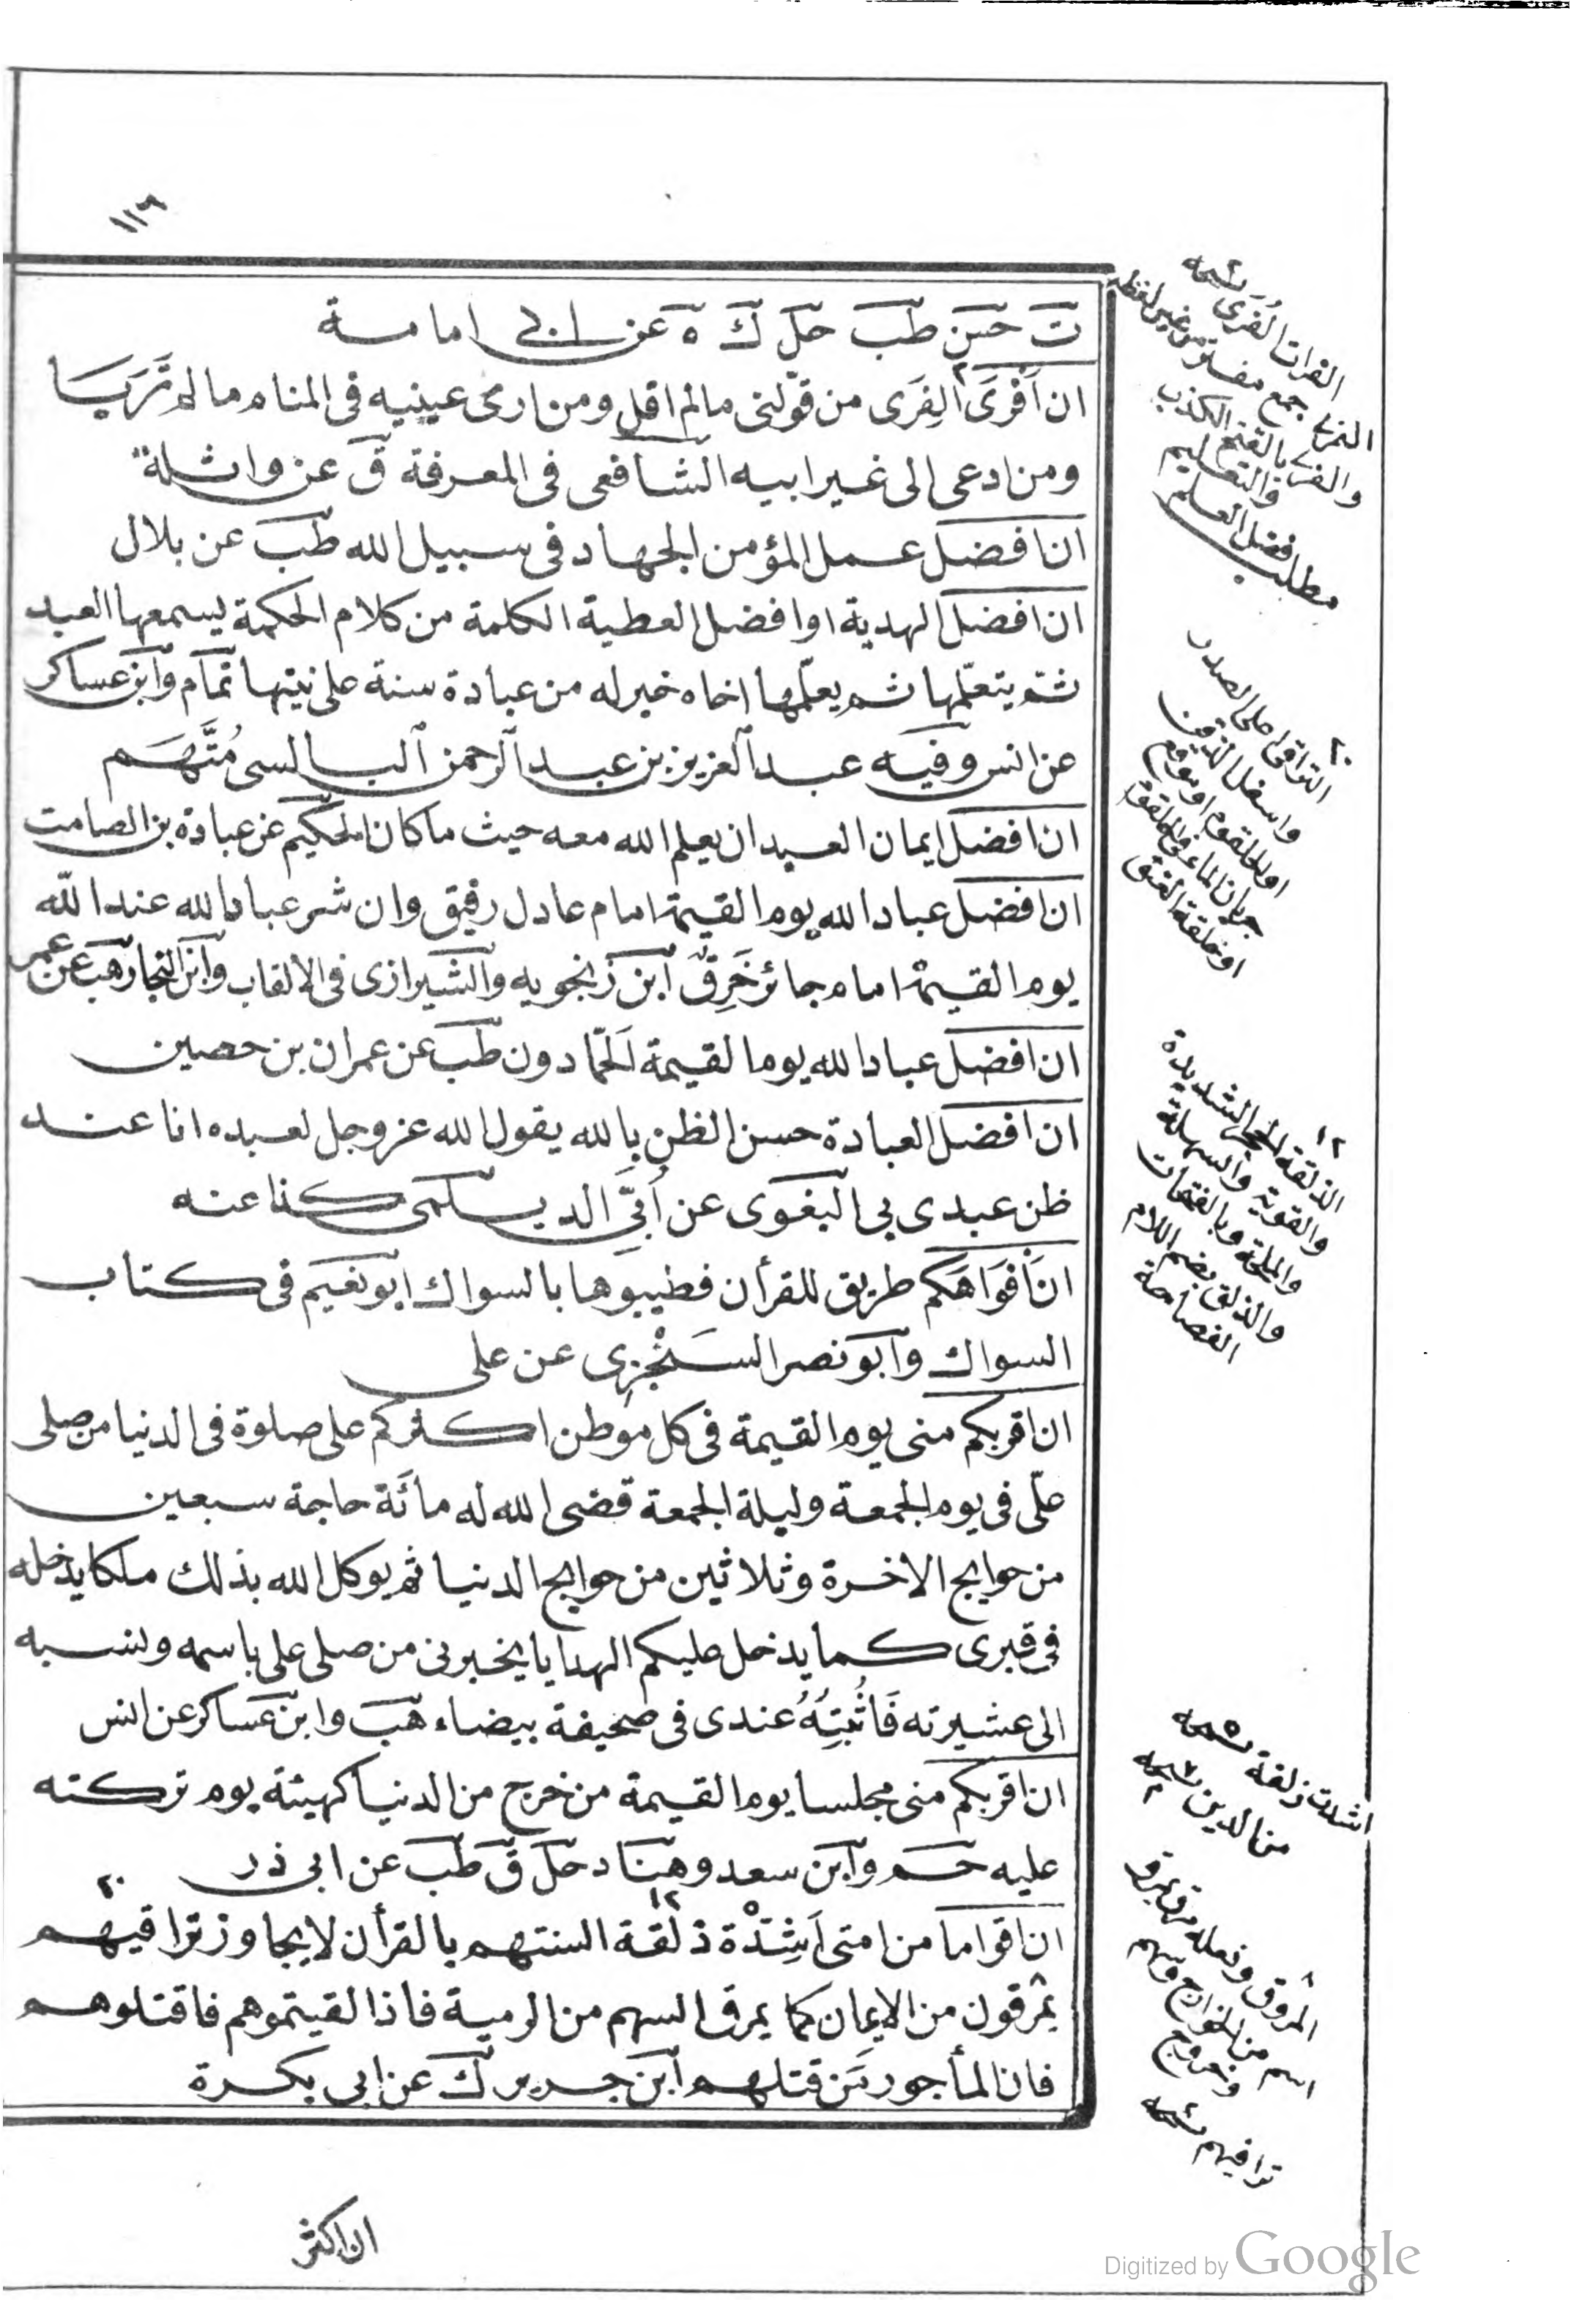 ١١٩
ت حسن طب حل ك ه عن ابى امامة
ان أفْرَى الفِرَى من قوّلنى مالم اقل ومن ارى عينيه فى المنام ما لم تَرَيَا
ومن ادعى الى غير ابيه الشافعى فى المعرفة ق عن واثلة
ان افضل عمل المؤمن الجهاد فى سبيل الله طب عن بلال
ان افضل الهدية او افضل العطية الكلمة من كلام الحكمة يسمعها العبد
ثم يتعلّمها ثم يعلّمها اخاه خير له من عبادة سنة على نيتها تمام وابن عساكر
عن انس وفيه عبد العزيز بن عبد الرحمن البالسى مُتَّهَم
ان افضل ايمان العبد ان يعلم الله معه حيث ما كان الحكيم عن عبادة بن الصامت
ان افضل عباد الله يوم القيمة امام عادل رفيق وان شر عباد الله عند الله
يوم القيمة امام جائر خَرِق ابن زنجويه والشيرازى فى الالقاب وابن النجار هب عن عمر
ان افضل عباد الله يوم القيمة الحمّادون طب عن عمران بن حصين
ان افضل العبادة حسن الظن بالله يقول الله عز وجل لعبده انا عند
ظن عبدى بى البغوى عن أُبَىّ الديلمى كذا عنه
ان أفوَاهَكم طريق للقرأن فطيبوها بالسواك ابو نعيم فى كتاب
السواك وابو نصر السَّجْزِى عن على
ان اقربكم منى يوم القيمة فى كل موطن اكثركم على صلوة فى الدنيا من صلى
علىّ فى يوم الجمعة وليلة الجمعة قضى الله له مأئة حاجة سبعين
من حوايج الاخرة وثلاثين من حوايج الدنيا ثم يوكل الله بذلك ملكا يدخله
فى قبرى كما يدخل عليكم الهدايا يخبرنى من صلى على باسمه ونسبه
الى عشيرته فَأُثْبِتُهُ عندى فى صحيفة بيضاء هب وابن عساكر عن انس
ان اقربكم منى مجلسا يوم القيمة من خرج من الدنيا كهيئة يوم تركته
عليه حم وابن سعد وهناد حل ق طب عن ابى ذر
ان اقواما من امتى اَشِدّة ذلقة السنتهم بالقرأن لا يجاوز تراقيهم
يمرقون من الايمان كما يمرق السهم من الرمية فاذا لقيتموهم فاقتلوهم
فان المأجور مَن قتلهم ابن جرير ك عن ابى بكرة
ان اكثر
جمع
من غير لفظه
والفرى بالفتح الكذب
والتعليم
مطلب فضل العلم
٢٠
التراقى اعلى الصدر
واسفل الذقن
او الحلقوم او موضع
جريان الماء فى الحلقوم
او حلقة العنق
١٢
الذلقة الحجر الشديدة
والقوية والسهلة
وبالفتحات
والذلق بضم اللام
الفصاحة
اشدت زلقة نسخه
من الدين نسخه
٨
المروق
اسم من الخوارج
وخروج
تراقيهم نسخه
Digitized by Google